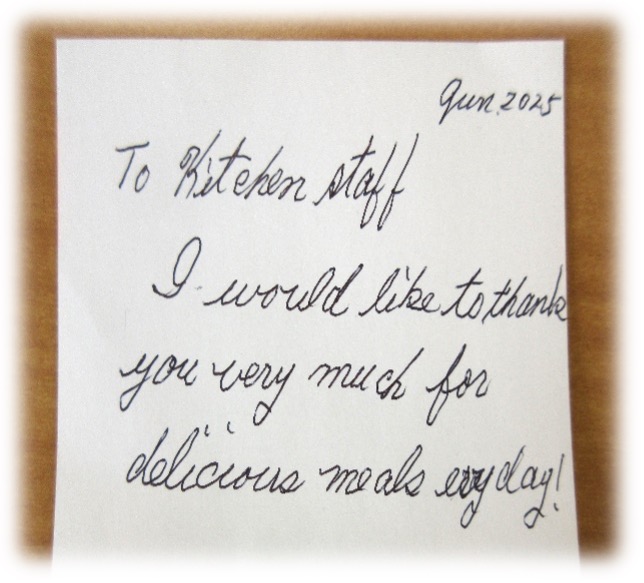 Jun. 2025
To Kitchen staff
I would like to thank
you very much for
delicious meals evryday!